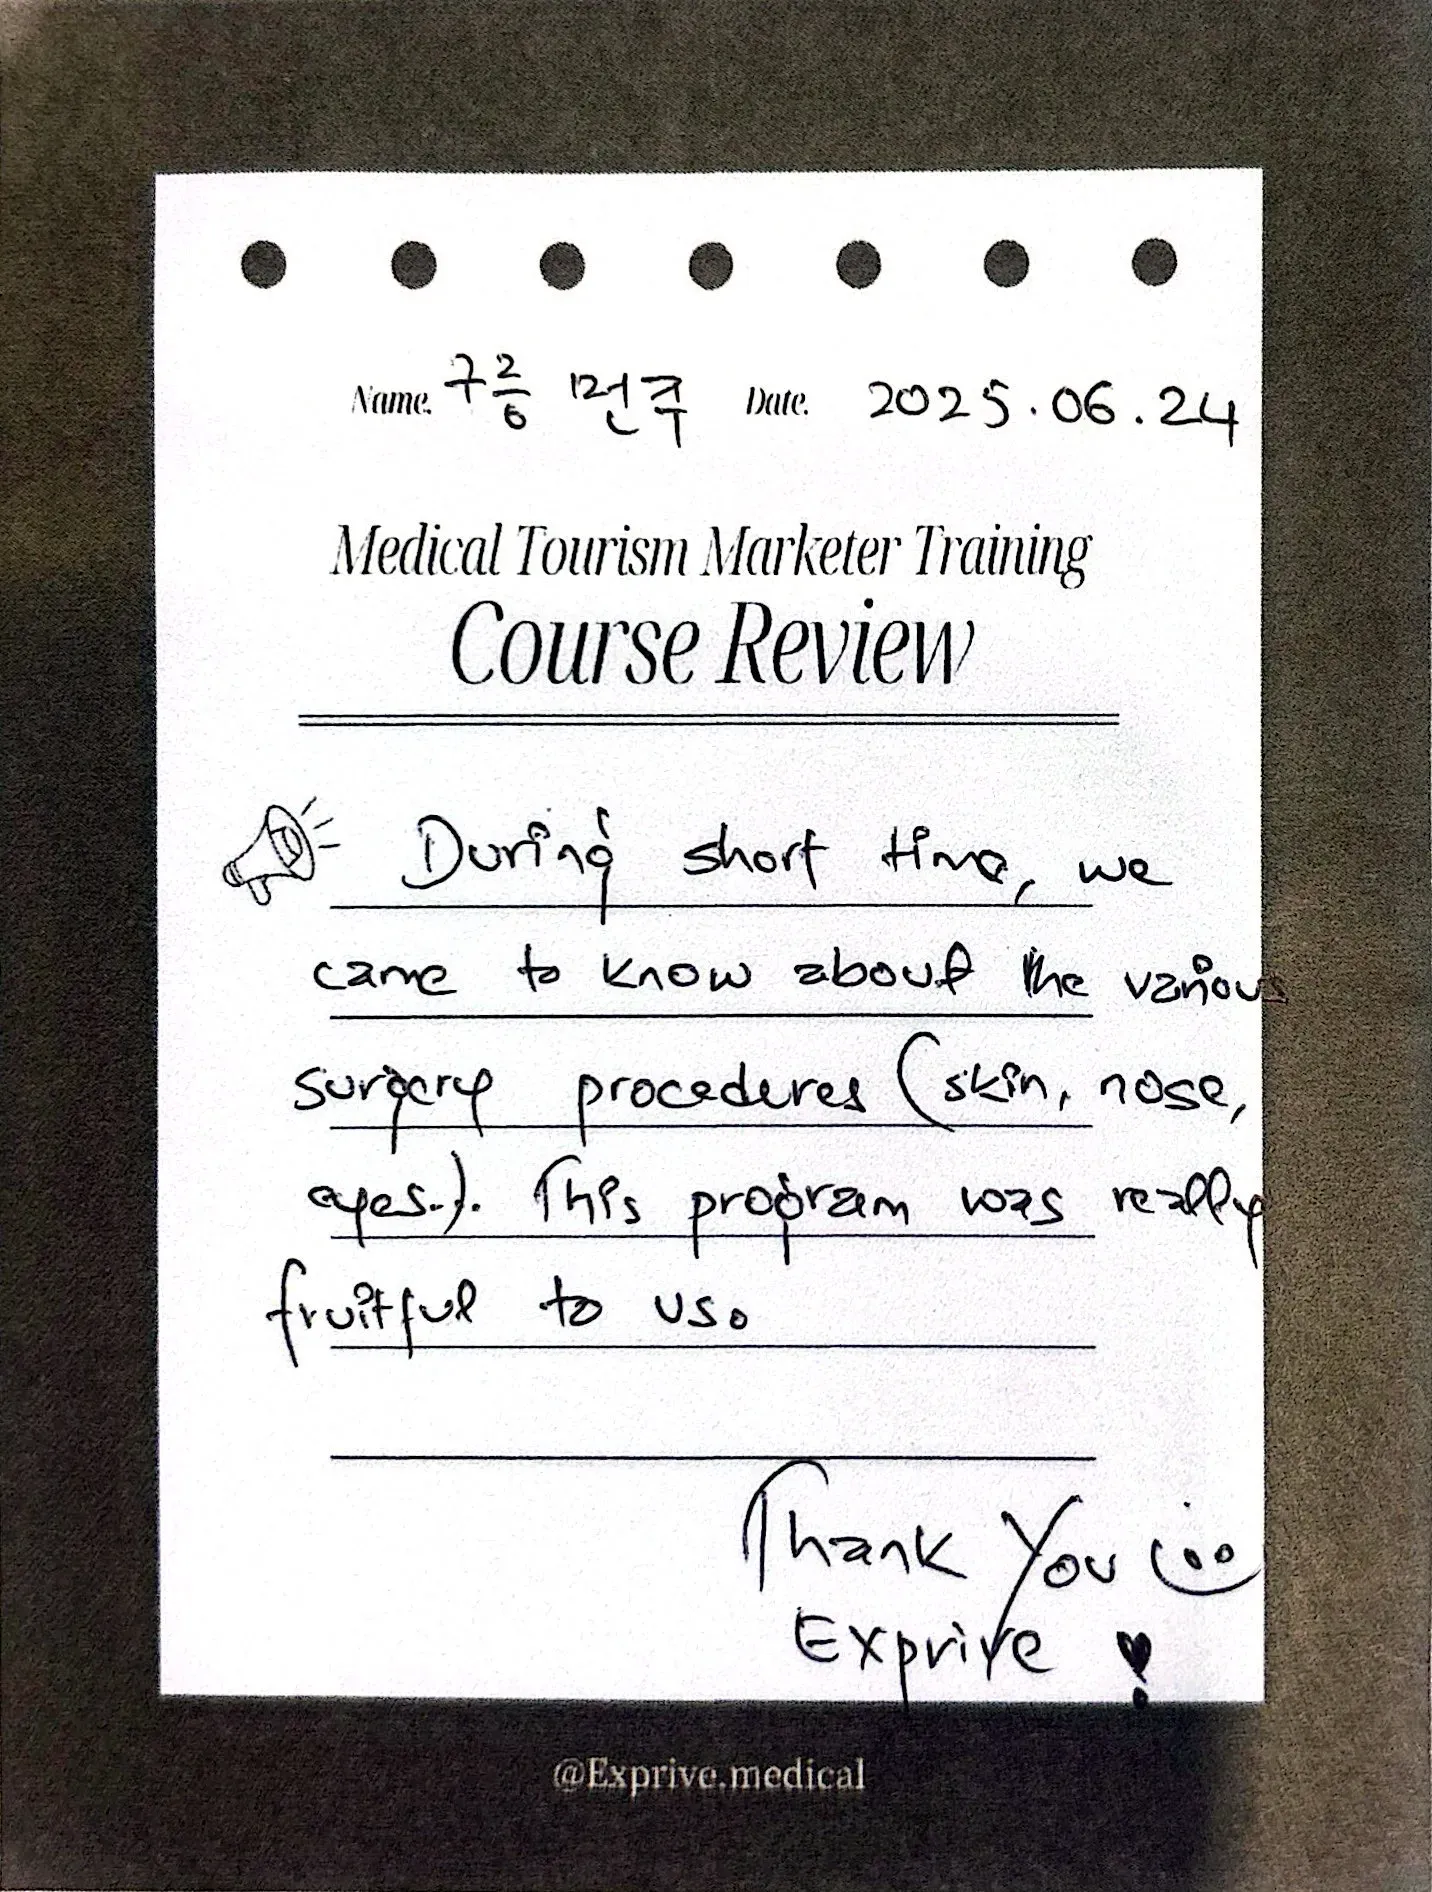 Name. 구릉 먼주 Date. 2025.06.24
Medical Tourism Marketer Training
Course Review
During short time, we
came to know about the various
surgery procedures (skin, nose,
eyes..). This program was really
fruitful to us.
Thank You
Exprive
@Exprive.medical